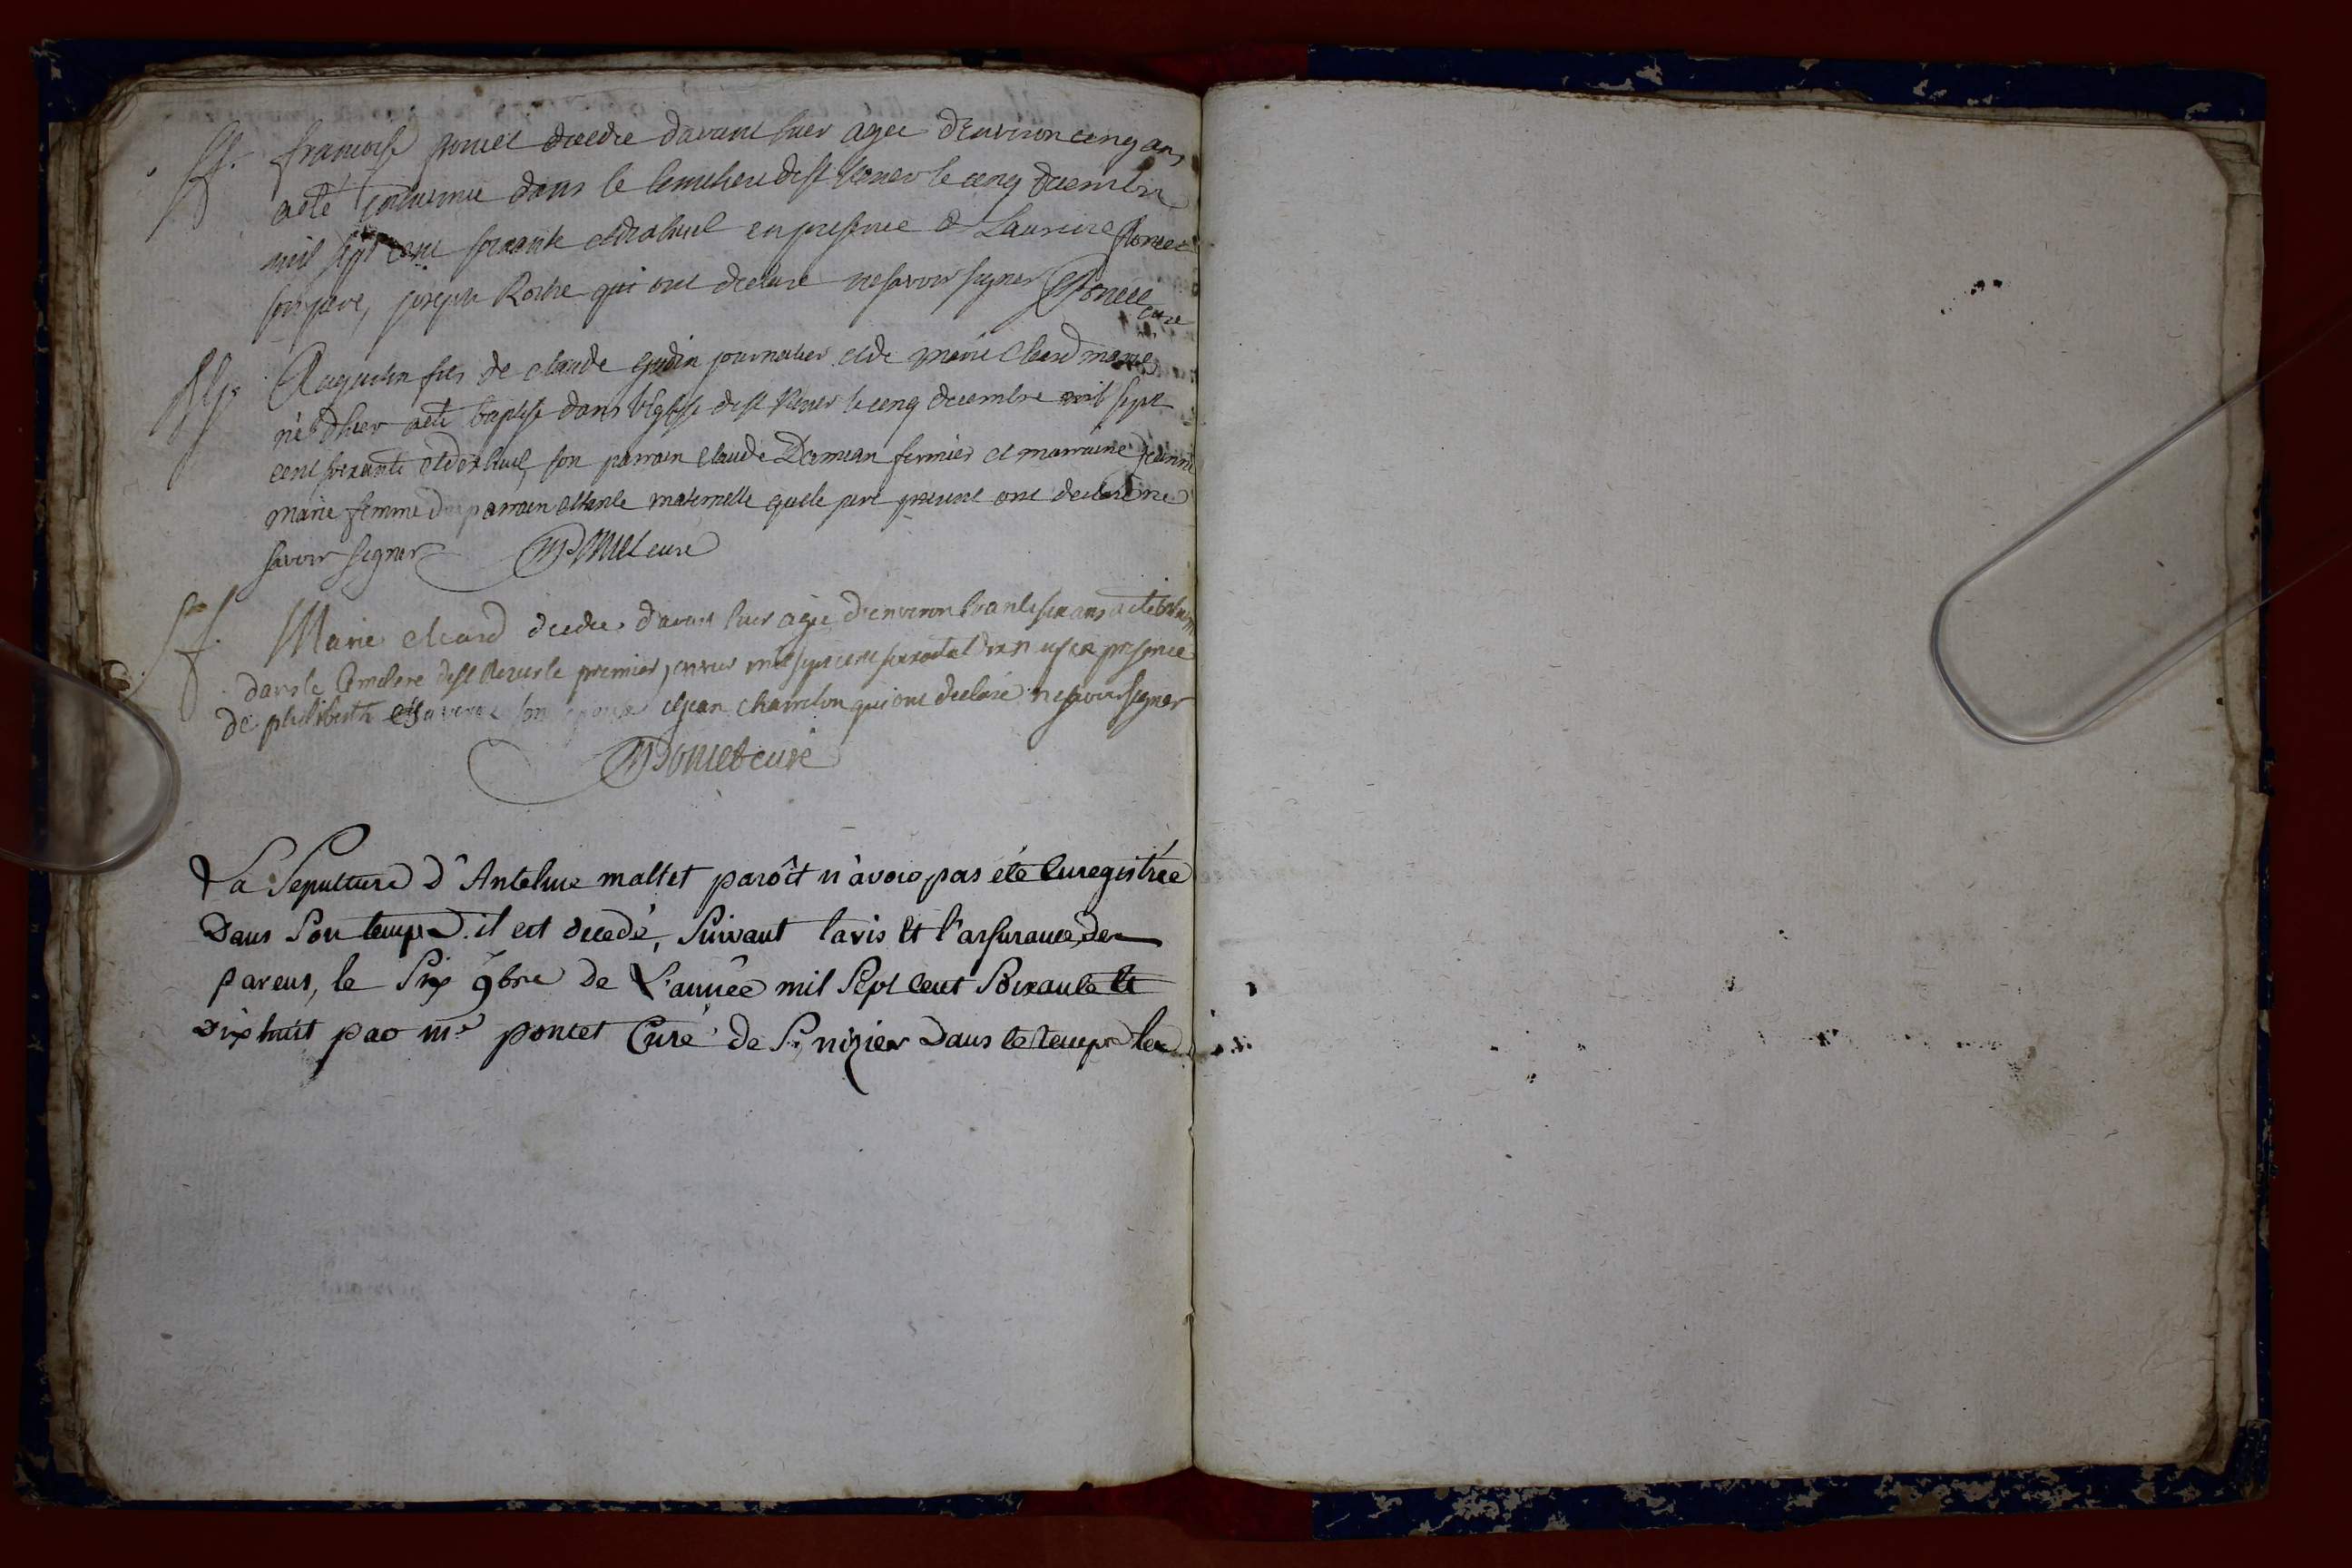 francoise poncet decedee davant hier agee d'Environ cinq ans
a eté inhumée dans le Cimetiere de st Nizier le cinq decembre
mil sept cent soixante et dixhuit en presence de Laurent poncet
son pere, joseph Roche qui ont declaré ne savoir signer Poncet
curé
Augustin fils de claude gudin journalier et de marie Cleard mariés
né d'hier a eté baptisé dans l'Eglise de st Nizier le cinq decembre mil sept
cent soixante et dixhuit, son parrain claude Damian fermier et marraine jeanne
marie femme du parrain et tante maternelle que le pere present ont declaré ne
savoir signer Poncet curé
Marie cleard decedee davant hier agée d'environ trante six ans a eté inhumée
dans le Cimetiere de st Nizier le premier janvier mil sept cent soixante et dix neuf en presence
de philiberth son epoux et jean chambon qui ont declaré ne savoir signer
Poncet curé
La Sepulture d'Antelme mallet parôit n'avoir pas été Enregistrée
Dans Son temps. il est decedé, Suivant l'avis Et l'assurance des
parens, le Six 9bre de L'année mil Sept Cent Soixante Et
Dix huit par mre poncet Curé de St nizier Dans le temps les